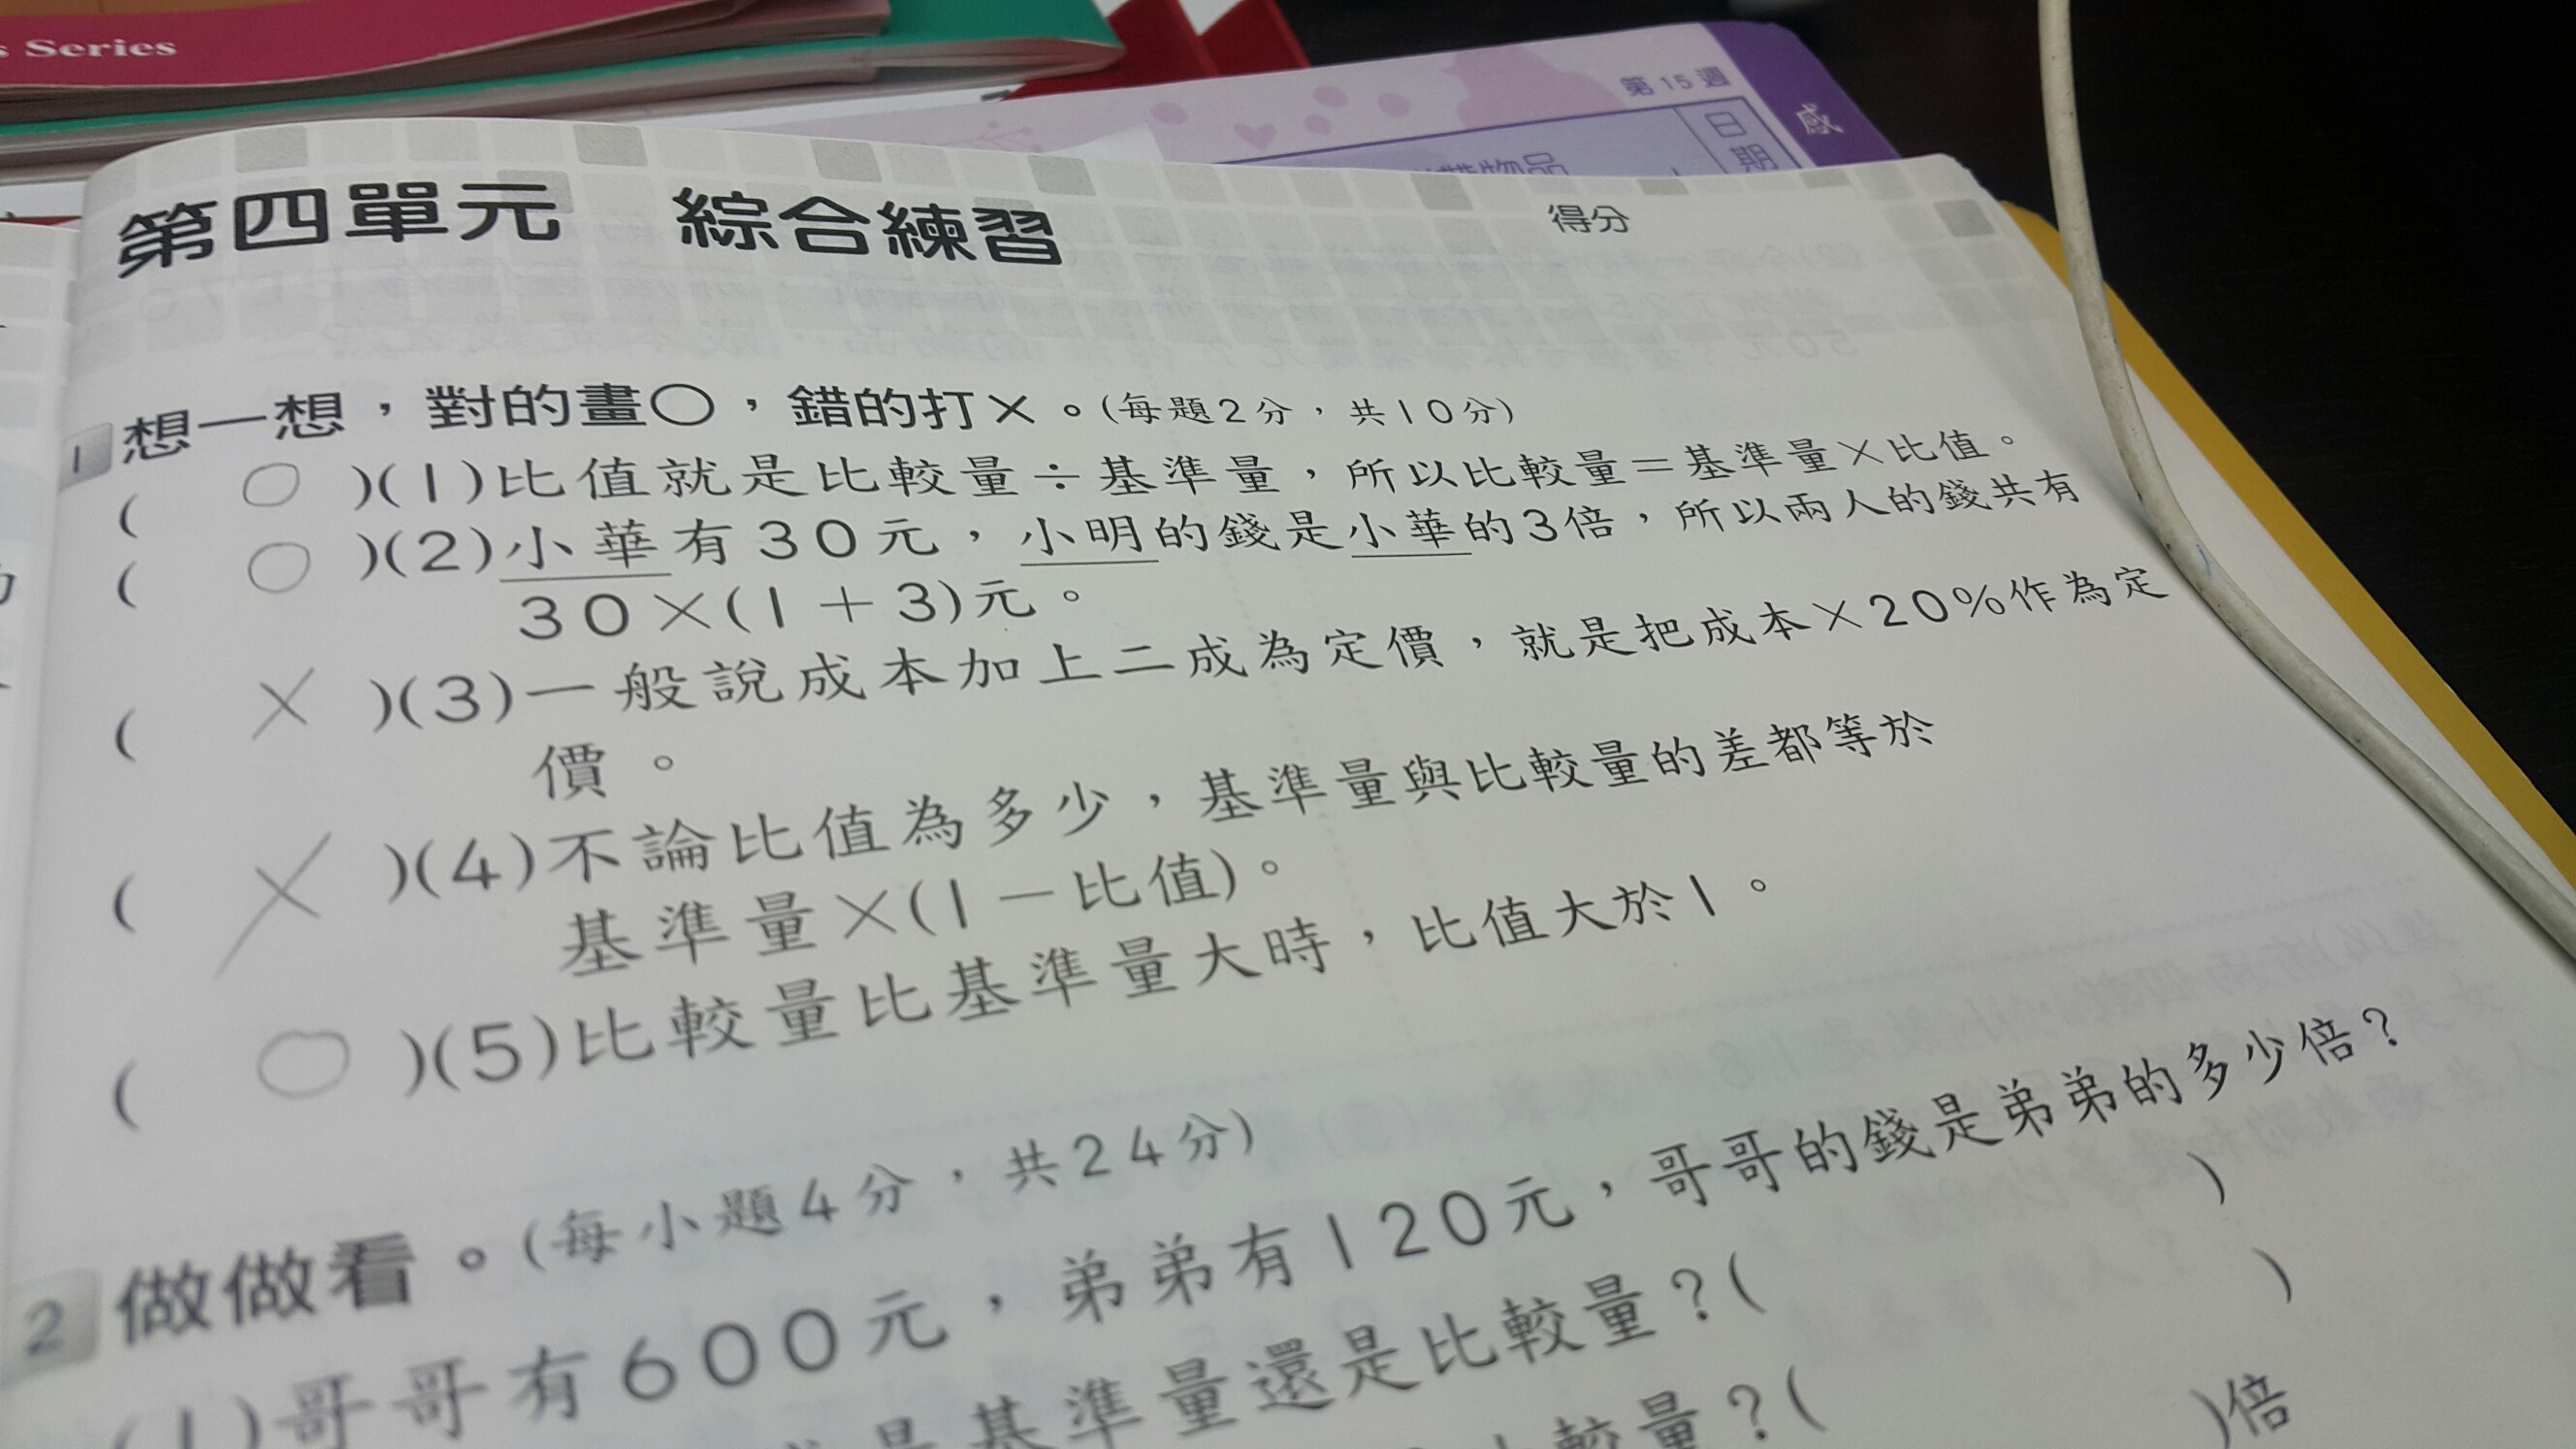 s Series
第15週
感
日
期
物品
第四單元 綜合練習
得分
1 想一想，對的畫○，錯的打×。(每題2分，共10分)
( ○ )(1)比值就是比較量÷基準量，所以比較量＝基準量×比值。
( ○ )(2)小華有30元，小明的錢是小華的3倍，所以兩人的錢共有
30×(1＋3)元。
( × )(3)一般說成本加上二成為定價，就是把成本×20%作為定
價。
( × )(4)不論比值為多少，基準量與比較量的差都等於
基準量×(1－比值)。
( ○ )(5)比較量比基準量大時，比值大於1。
2 做做看。(每小題4分，共24分)
(1)哥哥有600元，弟弟有120元，哥哥的錢是弟弟的多少倍？
是基準量還是比較量？( )
較量？( )
)倍